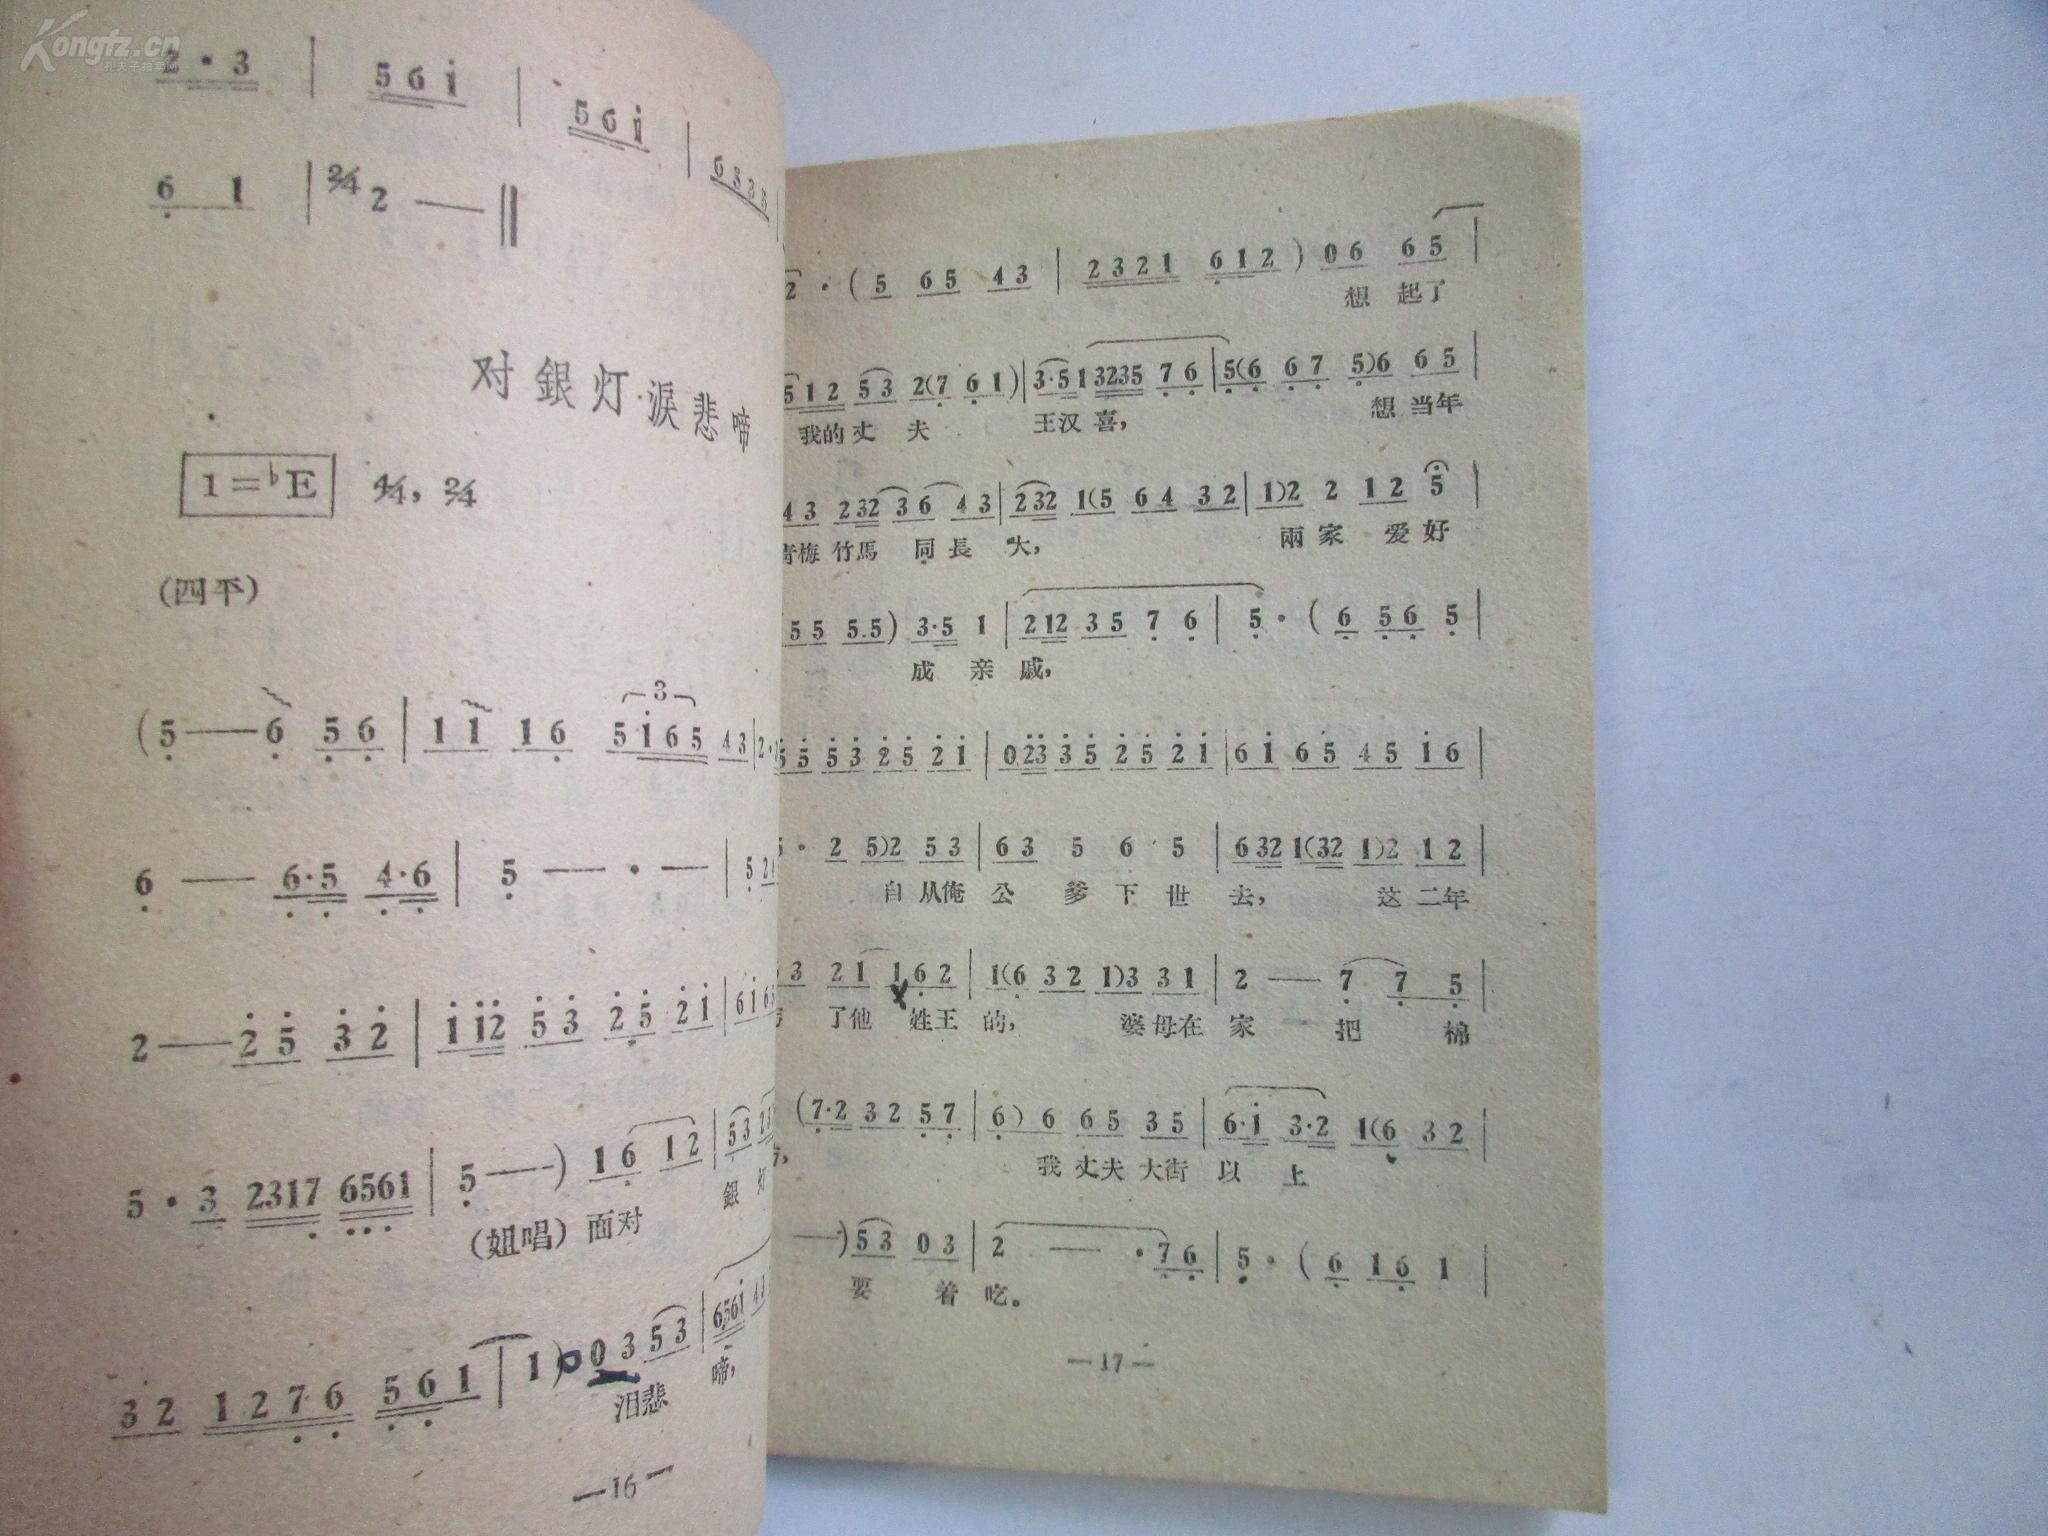 Kongfz.cn
孔夫子拍卖网
2·3 | 5 6 i | 5 6 i | 6 5 3 5
6 1 | 2/4 2 — ‖
对銀灯·淚悲啼
1=♭E 4/4, 2/4
(四平)
(5 — 6 5 6 | 1 1 1 6 5 i 6 5 4 3 | 2·
3
6 — 6·5 4·6 | 5 — · — | 5
2 — 2 5 3 2 | 1 12 5 3 2 5 2 1 | 6 i 6
5·3 2317 6561 | 5 —) 1 6 1 2 | 5 3
(姐唱) 面对 銀 灯
3 2 1 2 7 6 5 6 1 | 1) 0 3 5 3 | 6561
泪悲 啼,
—16—
2·(5 6 5 4 3 | 2 3 2 1 6 1 2) 0 6 6 5 |
想 起了
5 1 2 5 3 2(7 6 1) | 3·5 1 3235 7 6 | 5(6 6 7 5)6 6 5 |
我的丈夫 王汉喜, 想当年
4 3 2 32 3 6 4 3 | 2 32 1(5 6 4 3 2 | 1)2 2 1 2 5 |
青梅竹馬 同長大, 兩家 爱好
5 5 5.5) 3·5 1 | 2 12 3 5 7 6 | 5·(6 5 6 5 |
成亲戚,
5 5 5 3 2 5 2 i | 0 23 3 5 2 5 2 i | 6 i 6 5 4 5 i 6 |
5·2 5)2 5 3 | 6 3 5 6 5 | 6 32 1(32 1)2 1 2 |
自从俺公爹下世去, 这二年
3 2 1 1 6 2 | 1(6 3 2 1)3 3 1 | 2 — 7 7 5 |
了他 姓王的, 婆母在家 把 棉
(7·2 3 2 5 7 | 6) 6 6 5 3 5 | 6·i 3·2 1(6 3 2 |
我丈夫大街以上
—) 5 3 0 3 | 2 — ·7 6 | 5·(6 1 6 1 |
要着吃。
—17—